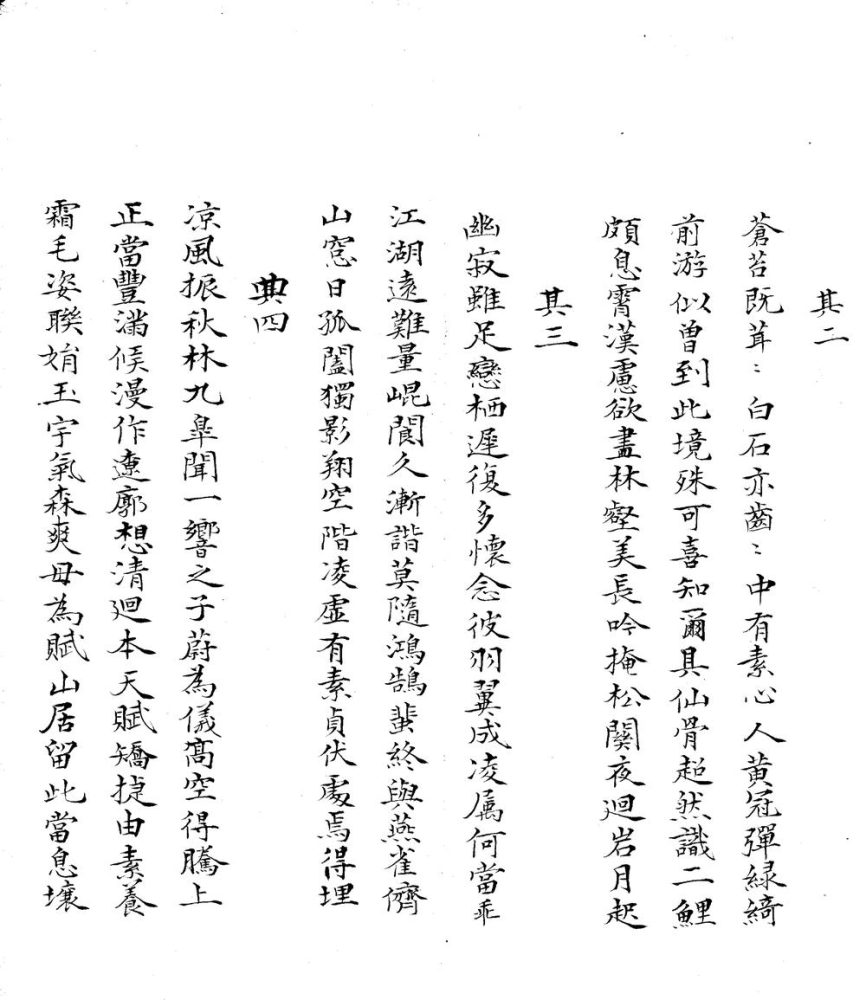 其二
蒼苔既茸〻白石亦齒〻中有素心人黃冠彈緑綺
前游似曾到此境殊可喜知爾具仙骨超然識二鯉
頗息霄漢慮欲盡林壑美長吟掩松關夜迴岩月起
其三
幽寂雖足戀栖遲復多懷念彼羽翼成凌厲何當乖
江湖遠難量崐閬久漸諧莫隨鴻鵠蜚終與燕雀儕
山窓日孤闔獨影翔空階凌虚有素貞伏處焉得埋
其四
凉風振秋林九臯聞一響之子蔚為儀髙空得騰上
正當豐滿候漫作遼廓想清迴本天賦矯捷由素養
霜毛姿聯娟玉宇氣森爽毋為賦山居留此當息壤